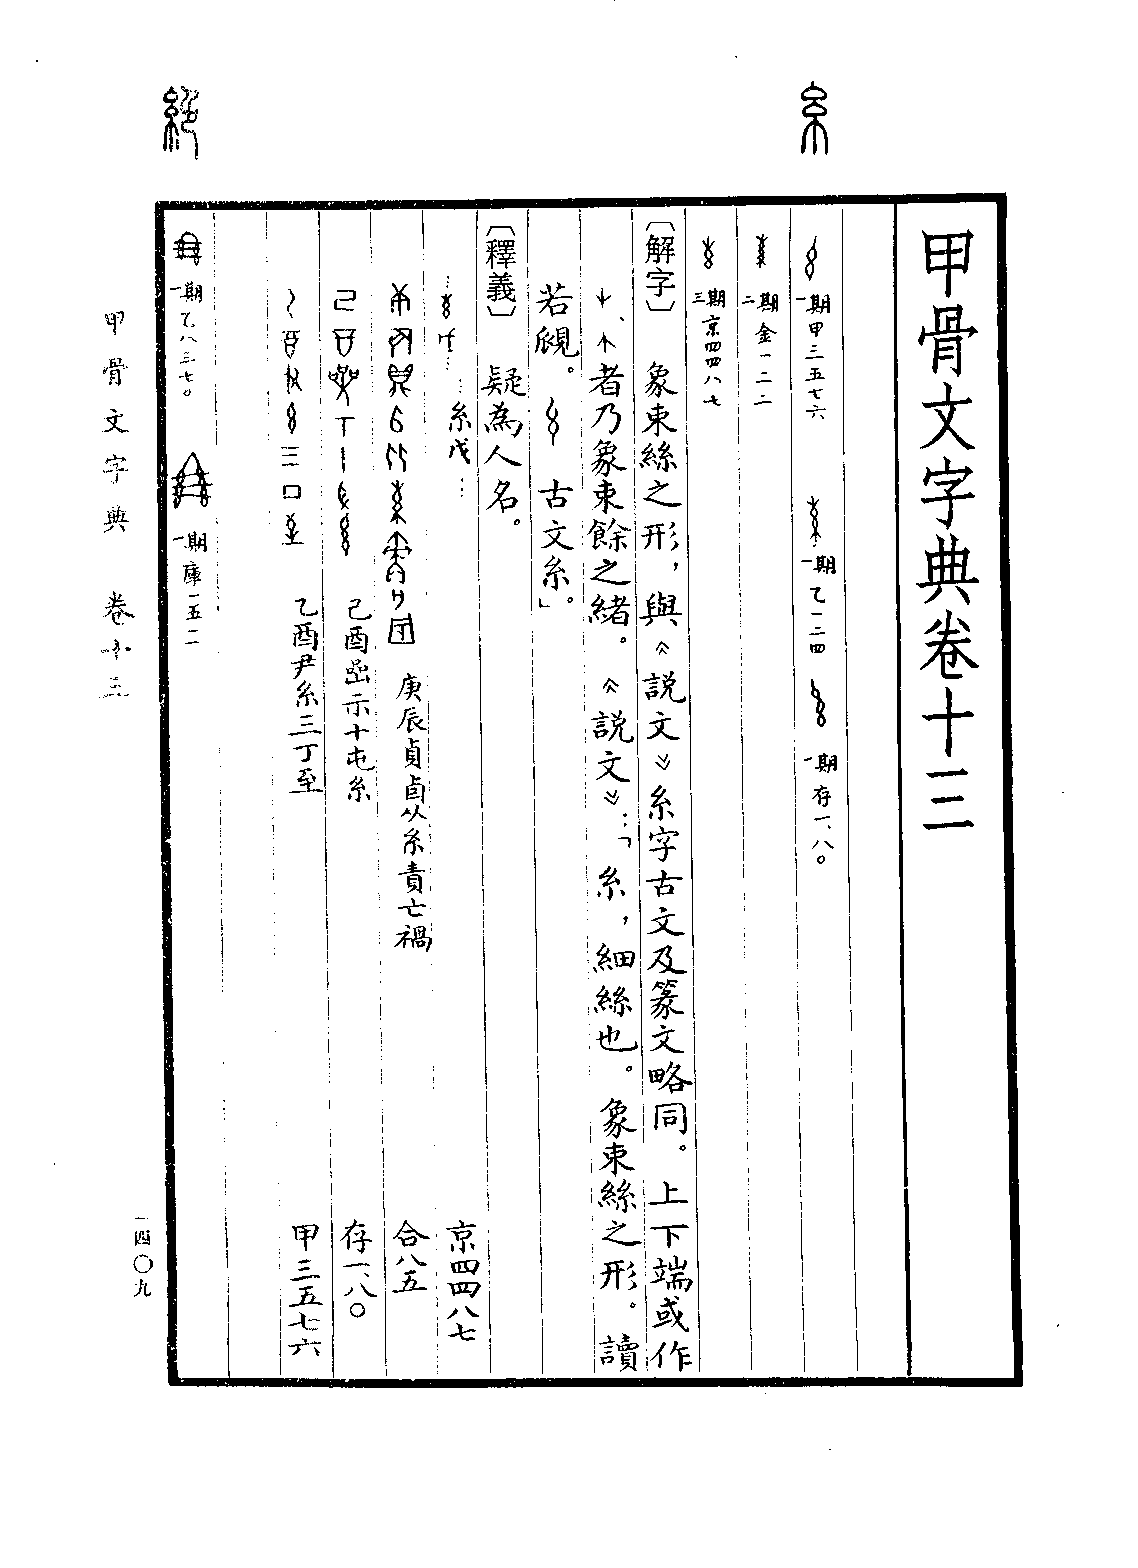 糸
甲骨文字典卷十三
一期甲三五七六 一期乙一二四 一期存一、八〇
二期金一二二
三期京四四八七
〔解字〕象束絲之形，與《說文》糸字古文及篆文略同。上下端或作
、者乃象束餘之緒。《說文》：「糸，細絲也。象束絲之形。讀
若覛。古文糸。」
〔釋義〕疑為人名。
…糸戊… 京四四八七
庚辰貞貞从糸責亡禍 合八五
己酉示十屯糸 存一、八〇
乙酉尹糸三丁至 甲三五七六
一期乙八三七〇 一期庫一五二
絕
甲骨文字典 卷十三
一四〇九